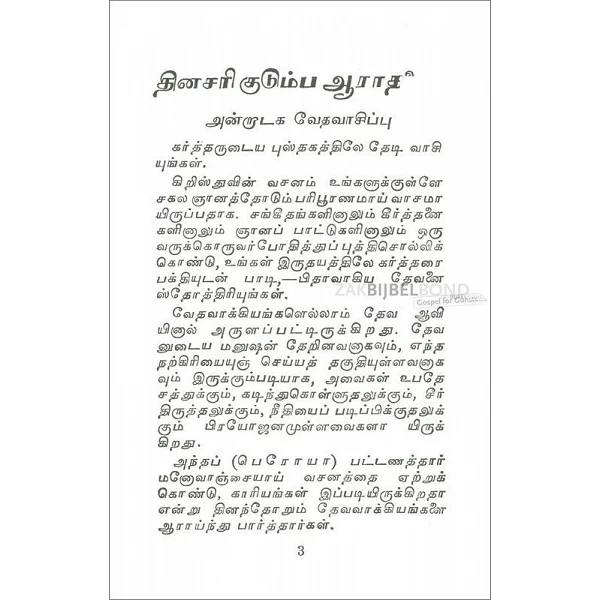 தினசரி குடும்ப ஆராத
அன்றாடக வேதவாசிப்பு
கர்த்தருடைய புஸ்தகத்திலே தேடி வாசி
யுங்கள்.
கிறிஸ்துவின் வசனம் உங்களுக்குள்ளே
சகல ஞானத்தோடும் பரிபூரணமாய் வாசமா
யிருப்பதாக. சங்கீதங்களினாலும் கீர்த்தனை
களினாலும் ஞானப் பாட்டுகளினாலும் ஒரு
வருக்கொருவர்போதித்துப் புத்திசொல்லிக்
கொண்டு, உங்கள் இருதயத்திலே கர்த்தரை
பக்தியுடன் பாடி,—பிதாவாகிய தேவனை
ஸ்தோத்திரியுங்கள்.
ZAKBIJBELBOND
Gospel for Guests
வேதவாக்கியங்களெல்லாம் தேவ ஆவி
யினால் அருளப்பட்டிருக்கிறது. தேவ
னுடைய மனுஷன் தேறினவனாகவும், எந்த
நற்கிரியையுஞ் செய்யத் தகுதியுள்ளவனாக
வும் இருக்கும்படியாக, அவைகள் உபதே
சத்துக்கும், கடிந்துகொள்ளுதலுக்கும், சீர்
திருத்தலுக்கும், நீதியைப் படிப்பிக்குதலுக்
கும் பிரயோஜனமுள்ளவைகளா யிருக்
கிறது.
அந்தப் (பெரோயா) பட்டணத்தார்
மனோவாஞ்சையாய் வசனத்தை ஏற்றுக்
கொண்டு, காரியங்கள் இப்படியிருக்கிறதா
என்று தினந்தோறும் தேவவாக்கியங்களை
ஆராய்ந்து பார்த்தார்கள்.
3